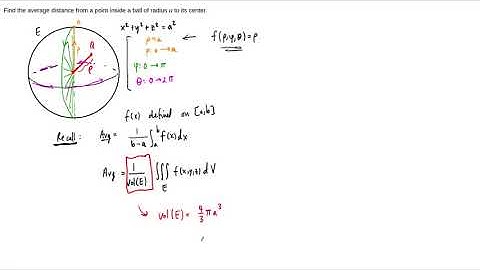 Find the average distance from a point inside a ball of radius a to its center.
E
x² + y² + z² = a²
f(ρ,φ,θ) = ρ
ρ = a
ρ: 0 → a
φ: 0 → π
θ: 0 → 2π
a
ρ
f(x) defined on [a,b]
Recall: Avg = 1/(b-a) ∫_a^b f(x) dx
Avg = 1/vol(E) ∭_E f(x,y,z) dV
↳ vol(E) = 4/3 π a³